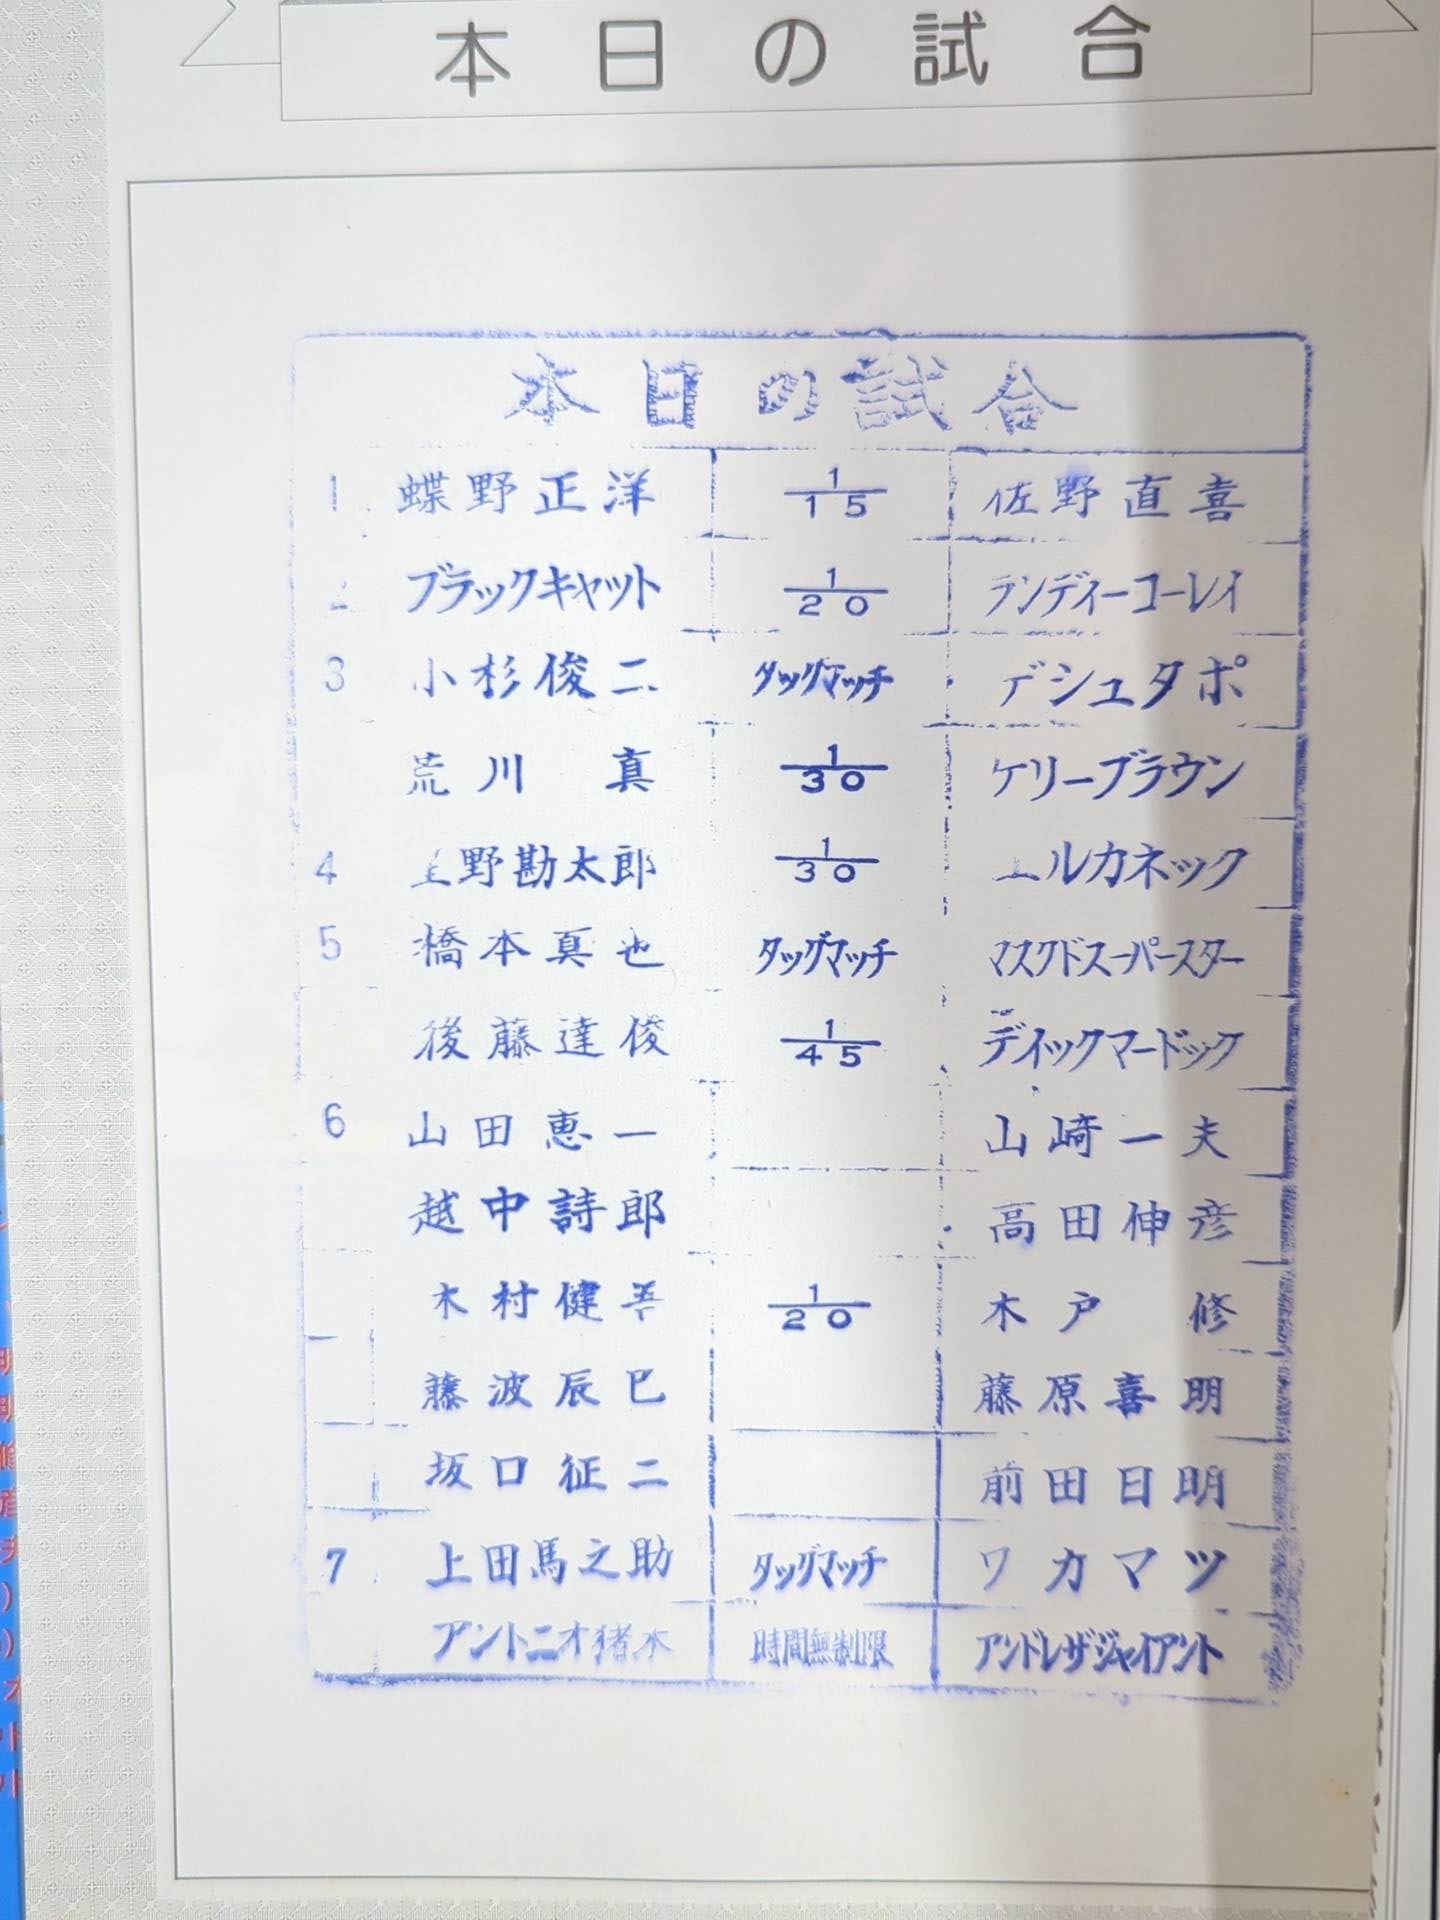 本日の試合
本日の試合
1 蝶野正洋 1/15 佐野直喜
ブラックキャット 1/20 ランディーコーレイ
3 小杉俊二 タッグマッチ デシュタポ
荒川 真 1/30 ケリーブラウン
4 野勘太郎 1/30 エルカネック
5 橋本真也 タッグマッチ マスクドスーパースター
後藤達俊 1/45 デイックマードック
6 山田恵一 山崎一夫
越中詩郎 高田伸彦
木村健吾 1/20 木戸 修
藤波辰巳 藤原喜明
坂口征二 前田日明
7 上田馬之助 タッグマッチ ワカマツ
アントニオ猪木 時間無制限 アンドレザジャイアント